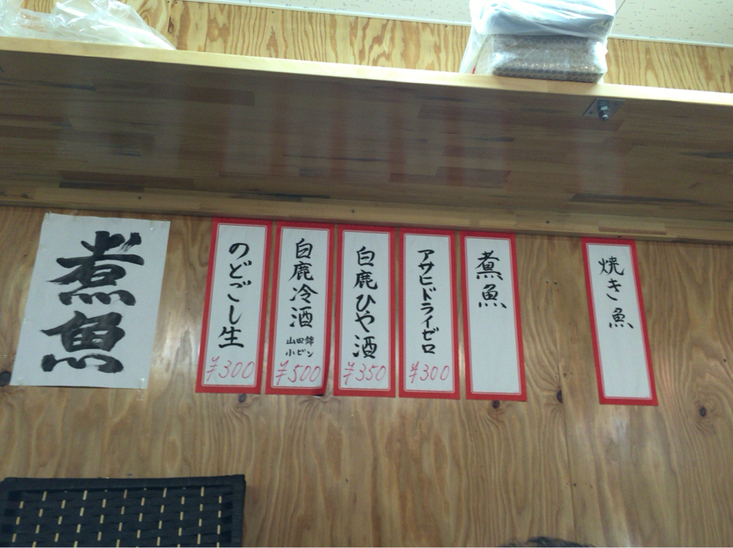 煮魚
のどごし生
¥300
白鹿冷酒
山田錦
小ビン
¥500
白鹿ひや酒
¥350
アサヒドライゼロ
¥300
煮魚
焼き魚